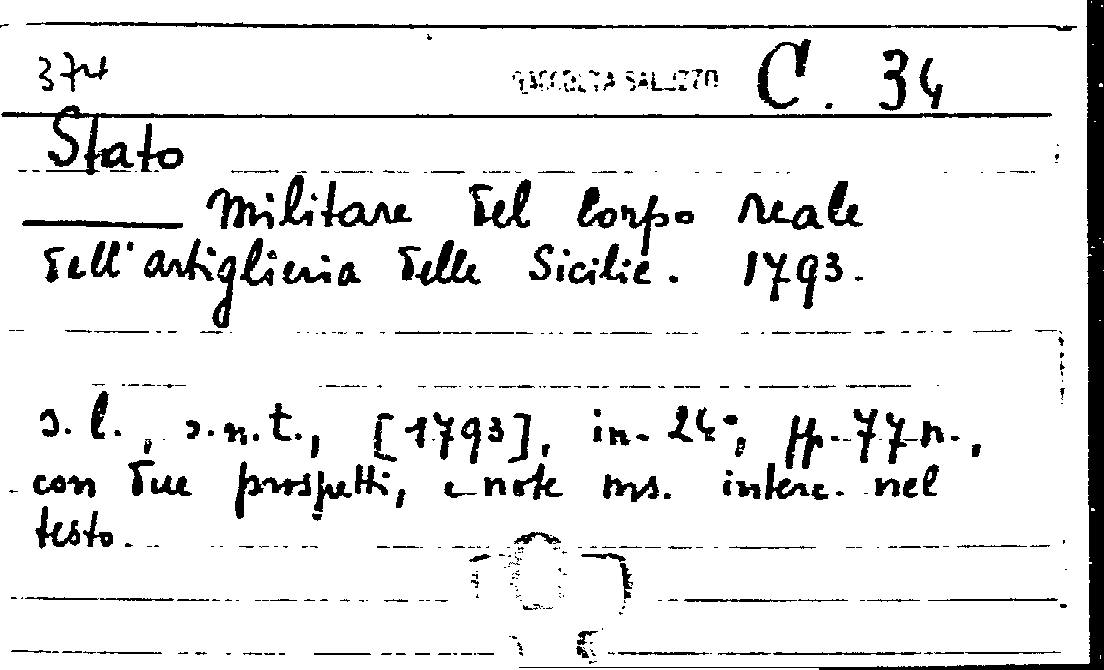 374 RACCOLTA SALUZZO C. 34
Stato
——— militare del corpo reale
dell'artiglieria delle Sicilie. 1793.
s. l., s.n.t., [1793], in-24°, pp. 77 n.,
con due prospetti, e note ms. interc. nel
testo.